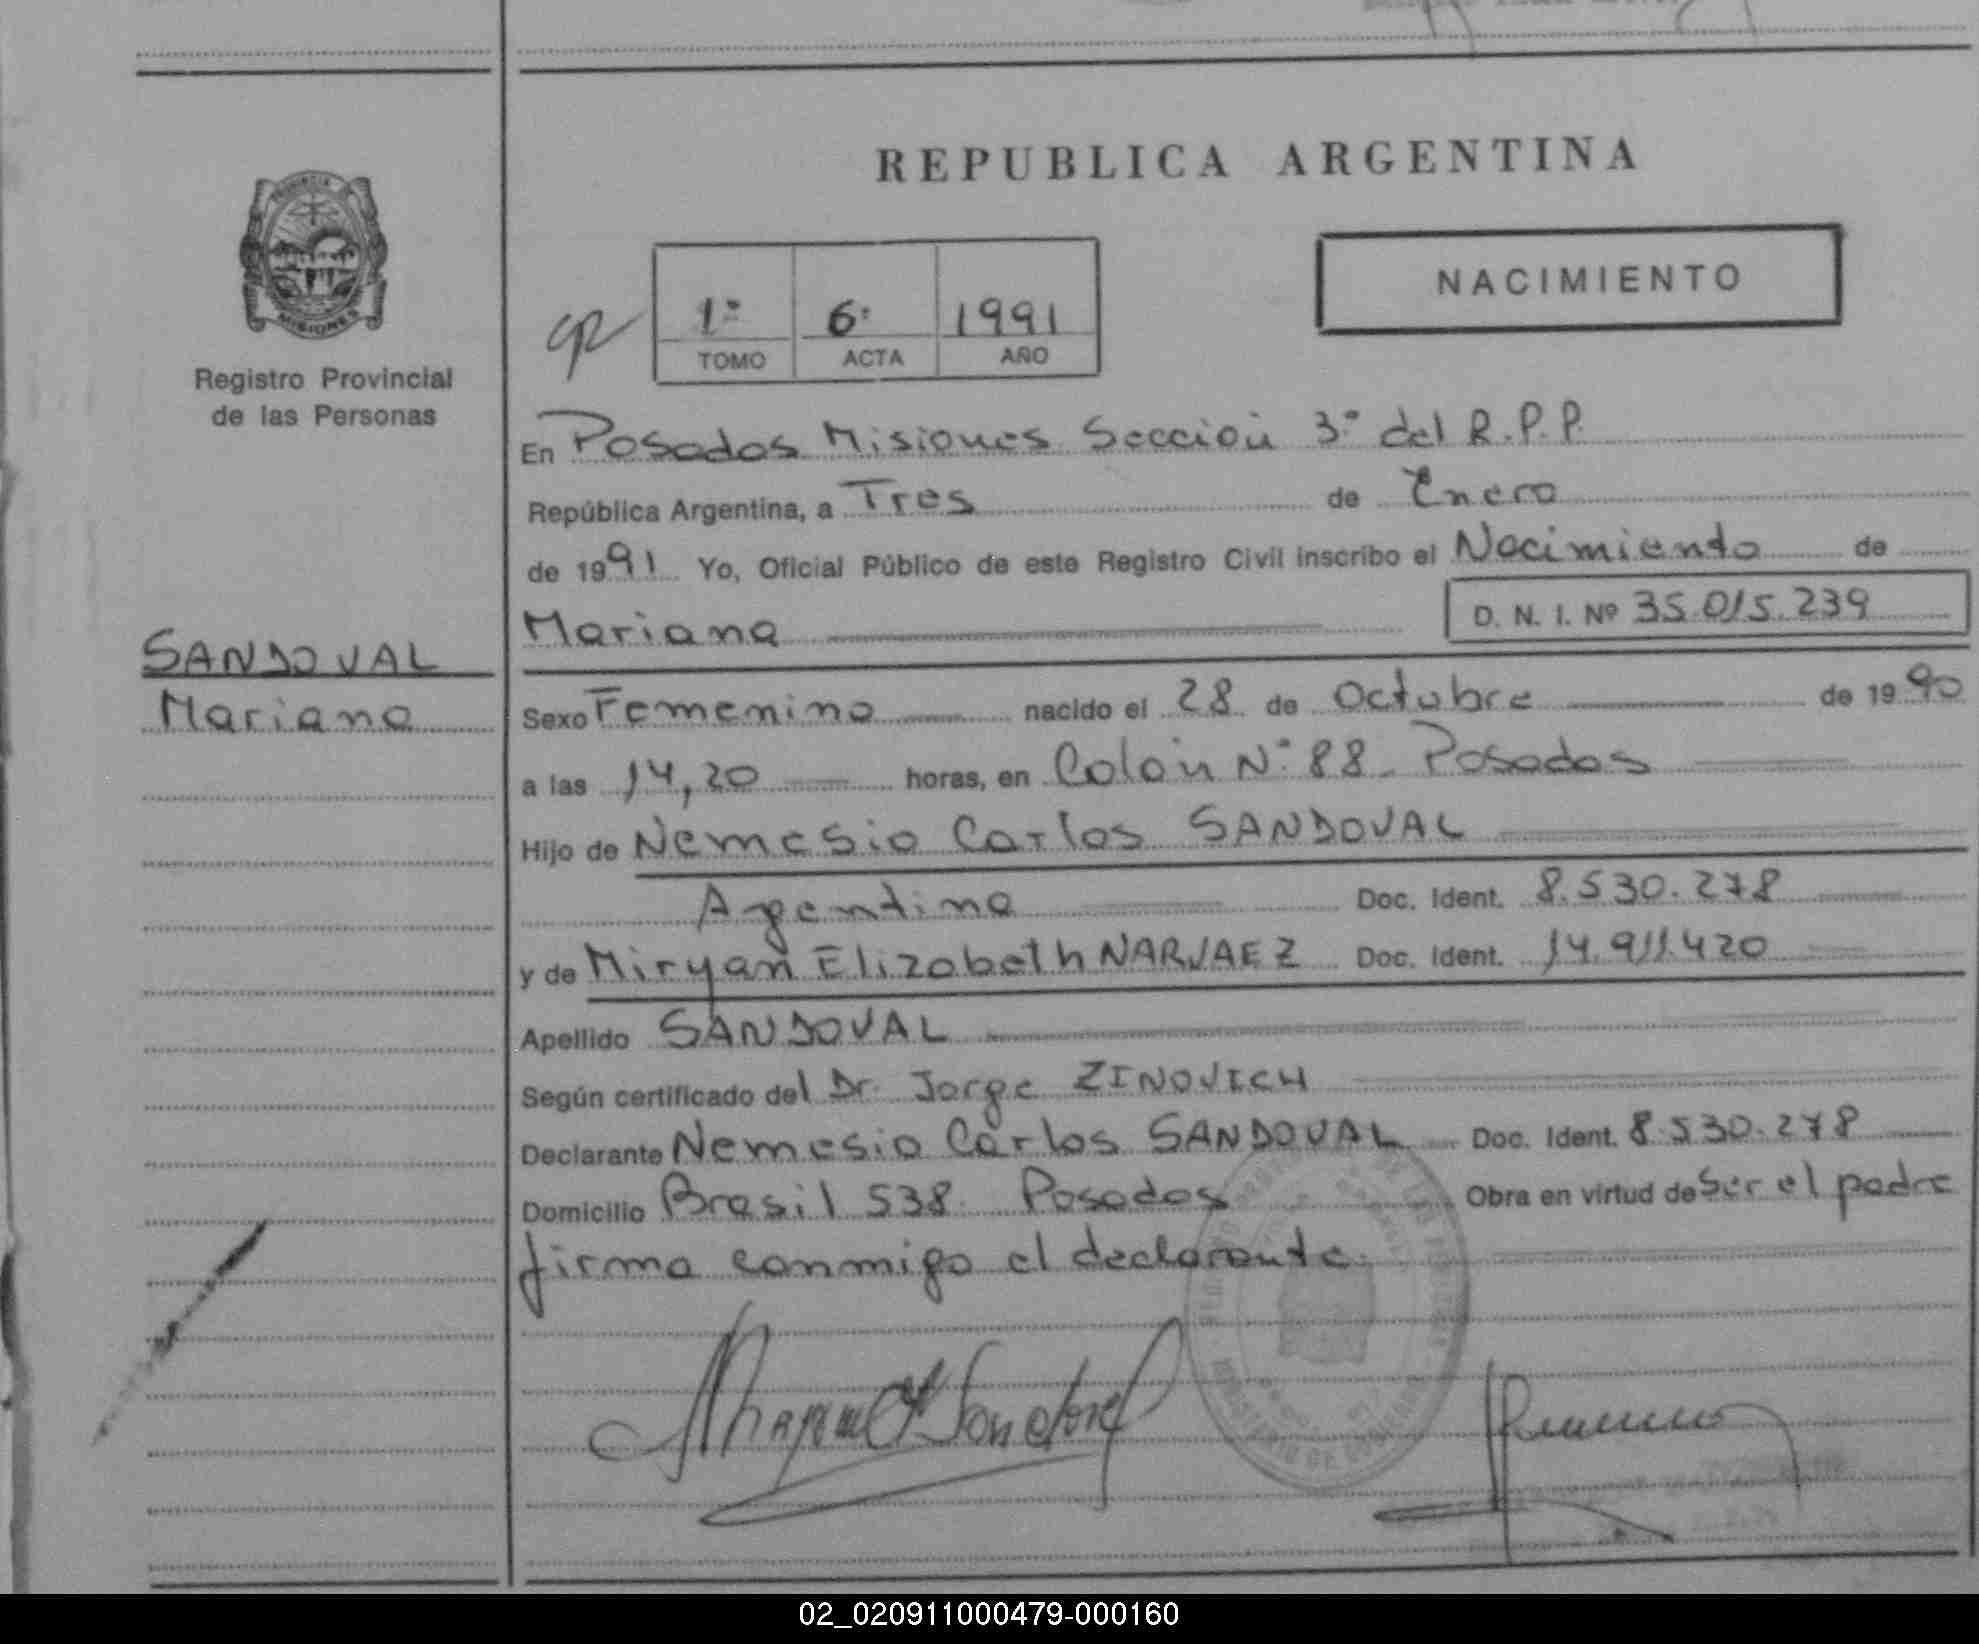 REPUBLICA ARGENTINA
PROVINCIA
MISIONES
Registro Provincial
de las Personas
NACIMIENTO
1º 6º 1991
TOMO ACTA AÑO
En Posadas Misiones Sección 3º del R.P.P.
República Argentina, a Tres de Enero
de 1991 Yo, Oficial Público de este Registro Civil inscribo el Nacimiento de
Mariana D. N. I. Nº 35.015.239
SANDOVAL
Mariana
Sexo Femenino nacido el 28 de Octubre de 1990
a las 14,20 horas, en Colón Nº 88 - Posadas
Hijo de Nemesio Carlos SANDOVAL
Argentina Doc. Ident. 8.530.278
y de Miryan Elizabeth NARVAEZ Doc. Ident. 14.911.420
Apellido SANDOVAL
Según certificado del Dr. Jorge ZINOVICH
Declarante Nemesio Carlos SANDOVAL Doc. Ident. 8.530.278
Domicilio Brasil 538 Posadas Obra en virtud de ser el padre
firma conmigo el declarante.
02_020911000479-000160